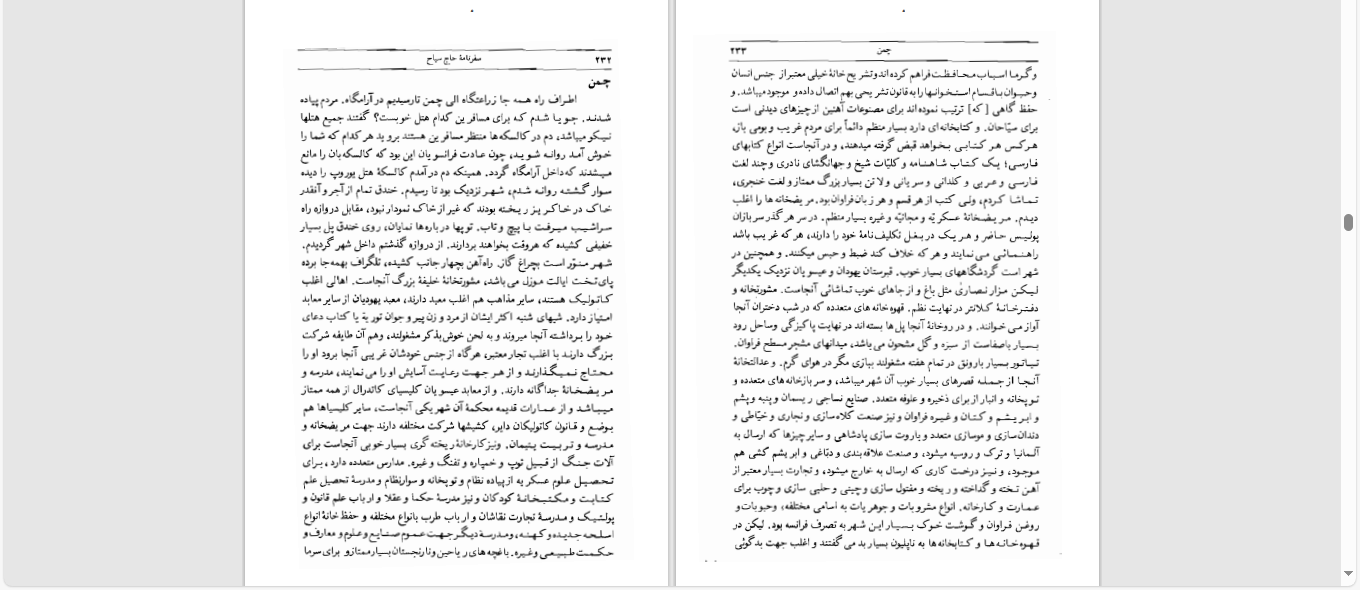 ۲۳۲
سفرنامهٔ حاج سیاح
چمن
اطراف راه همه جا زراعتگاه الی چمن تارسیدیم در آرامگاه. مردم پیاده
شدند. جویا شدم که برای مسافرین کدام هتل خوبست؟ گفتند جمیع هتلها
نیکو میباشد، دم در کالسکه‌ها منتظر مسافرین هستند بروید هر کدام که شما را
خوش آمد روانه شوید، چون عادت فرانسویان این بود که کالسکه‌بان را مانع
میشدند که داخل آرامگاه گردد. همینکه دم در آمدم کالسکهٔ هتل یوروپ را دیده
سوار گشته روانه شدم، شهر نزدیک بود تا رسیدم. خندق تمام از آجر و آنقدر
خاک در خاکریز ریخته بودند که غیر از خاک نمودار نبود، مقابل دروازه راه
سراشیب میرفت با پیچ و تاب. توپها در باره‌ها نمایان، روی خندق پل بسیار
خفیفی کشیده که هروقت بخواهند بردارند. از دروازه گذشتم داخل شهر گردیدم.
شهر منوّر است بچراغ گاز. راه‌آهن بچهار جانب کشیده، تلگراف بهمه‌جا برده
پای‌تخت ایالت موزل می‌باشد، مشورتخانهٔ خلیفهٔ بزرگ آنجاست. اهالی اغلب
کاتولیک هستند، سایر مذاهب هم اغلب معبد دارند، معبد یهودیان از سایر معابد
امتیاز دارد. شبهای شنبه اکثر ایشان از مرد و زن پیر و جوان توریة یا کتاب دعای
خود را برداشته آنجا میروند و به لحن خوش بذکر مشغولند، وهم آن طایفه شرکت
بزرگ دارند با اغلب تجار معتبر، هرگاه از جنس خودشان غریبی آنجا برود او را
محتاج نمیگذارند و از هر جهت رعایت آسایش او را می‌نمایند، مدرسه و
مریضخانهٔ جداگانه دارند. و از معابد عیسویان کلیسیای کاتدرال از همه ممتاز
میباشد و از عمارات قدیمه محکمهٔ آن شهر یکی آنجاست، سایر کلیسیاها هم
بوضع و قانون کاتولیکان دایر، کشیشها شرکت مختلفه دارند جهت مریضخانه و
مدرسه و تربیت یتیمان. ونیز کارخانهٔ ریخته گری بسیار خوبی آنجاست برای
آلات جنگ از قبیل توپ و خمپاره و تفنگ و غیره. مدارس متعدده دارد، برای
تحصیل علوم عسکریه از پیاده نظام و توپخانه و سوارنظام و مدرسهٔ تحصیل علم
کتابت و مکتبخانهٔ کودکان و نیز مدرسهٔ حکما و عقلا و ارباب علم قانون و
پولتیک و مدرسهٔ تجارت نقاشان و ارباب طرب بانواع مختلفه و حفظ خانهٔ انواع
اسلحه جدیده و کهنه، ومدرسهٔ دیگر جهت عموم صنایع و علوم و معارف و
حکمت طبیعی وغیره. باغچه‌های ریاحین ونارنجستان بسیار ممتاز و برای سرما
چمن
۲۳۳
و گرما اسباب محافظت فراهم کرده‌اند و تشریح خانهٔ خیلی معتبر از جنس انسان
وحیوان باقسام استخوانها را به قانون تشریحی بهم اتصال داده و موجود میباشد. و
حفظ گاهی [که] ترتیب نموده اند برای مصنوعات آهنین از چیزهای دیدنی است
برای سیّاحان. و کتابخانه‌ای دارد بسیار منظم دائماً برای مردم غریب و بومی باز.
هرکس هر کتابی بخواهد قبض گرفته میدهند، و در آنجاست انواع کتابهای
فارسی؛ یک کتاب شاهنامه و کلیّات شیخ و جهانگشای نادری و چند لغت
فارسی و عربی و کلدانی و سریانی و لاتن بسیار بزرگ ممتاز و لغت خنجری،
تماشا کردم، ولی کتب از هر قسم و هر زبان فراوان بود. مریضخانه ها را اغلب
دیدم. مریضخانهٔ عسکریّه و مجانیّه و غیره بسیار منظم. در سر هر گذر سربازان
پولیس حاضر و هر یک در بغل تکلیف‌نامهٔ خود را دارند، هر که غریب باشد
راهنمائی می‌نمایند و هر که خلاف کند ضبط و حبس میکنند. و همچنین در
شهر است گردشگاههای بسیار خوب. قبرستان یهودان و عیسویان نزدیک یکدیگر
لیکن مزار نصاریٰ مثل باغ و از جاهای خوب تماشائی آنجاست. مشورتخانه و
دفترخانهٔ کلانتر در نهایت نظم. قهوه‌خانه های متعدده که در شب دختران آنجا
آواز می خوانند. و در روخانهٔ آنجا پل‌ها بسته‌اند در نهایت پاکیزگی وساحل رود
بسیار باصفاست از سبزه و گل مشحون می باشد، میدانهای مشجر مسطح فراوان.
تیاتور بسیار بارونق در تمام هفته مشغولند ببازی مگر در هوای گرم. و عدالتخانهٔ
آنجا از جمله قصرهای بسیار خوب آن شهر میباشد، و سربازخانه‌های متعدده و
توپخانه و انبار از برای ذخیره و علوفه متعدد. صنایع نساجی ریسمان و پنبه و پشم
و ابریشم و کتان و غیره فراوان و نیز صنعت کلاه‌سازی و نجاری و خیّاطی و
دندان‌سازی و موسازی متعدد و باروت سازی پادشاهی و سایر چیزها که ارسال به
آلمانیا و ترک و روسیه میشود، و صنعت علاقه‌بندی و دبّاغی و ابریشم کشی هم
موجود، و نیز درخت کاری که ارسال به خارج میشود، و تجارت بسیار معتبر از
آهن تخته و گداخته و ریخته و مفتول سازی و چینی و حلبی سازی و چوب برای
عمارت و کارخانه. انواع مشروبات و جوهریات به اسامی مختلفه، وحبوبات و
روغن فراوان و گوشت خوک بسیار این شهر به تصرف فرانسه بود. لیکن در
قهوه‌خانه‌ها و کتابخانه‌ها به ناپلیون بسیار بد می گفتند و اغلب جهت بدگوئی